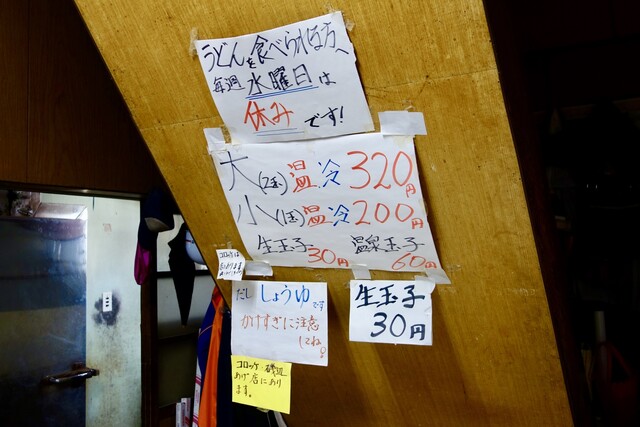 うどんを食べられる方、
毎週水曜日は
休みです!
大(2玉)温冷320円
小(1玉)温冷200円
生玉子 温泉玉子
30円 60円
コロッケは
だししょうゆです
かけすぎに注意
してね。
生玉子
30円
コロッケ・磯辺
あげ店にあり
ます。